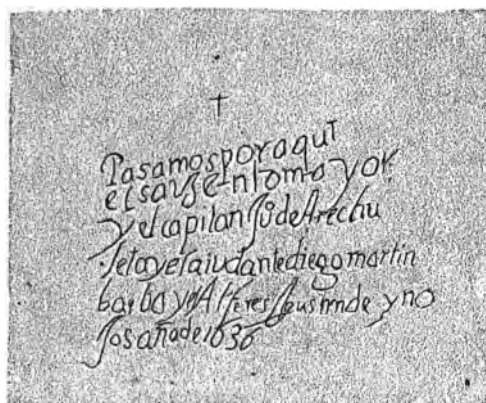 †
Pasamos por aqui
el sarjento mayor
y el capitan Ju de Arechu
leta y el aiudante diego martin
barba y el Alferes Agustin de yno
jos año de 1636